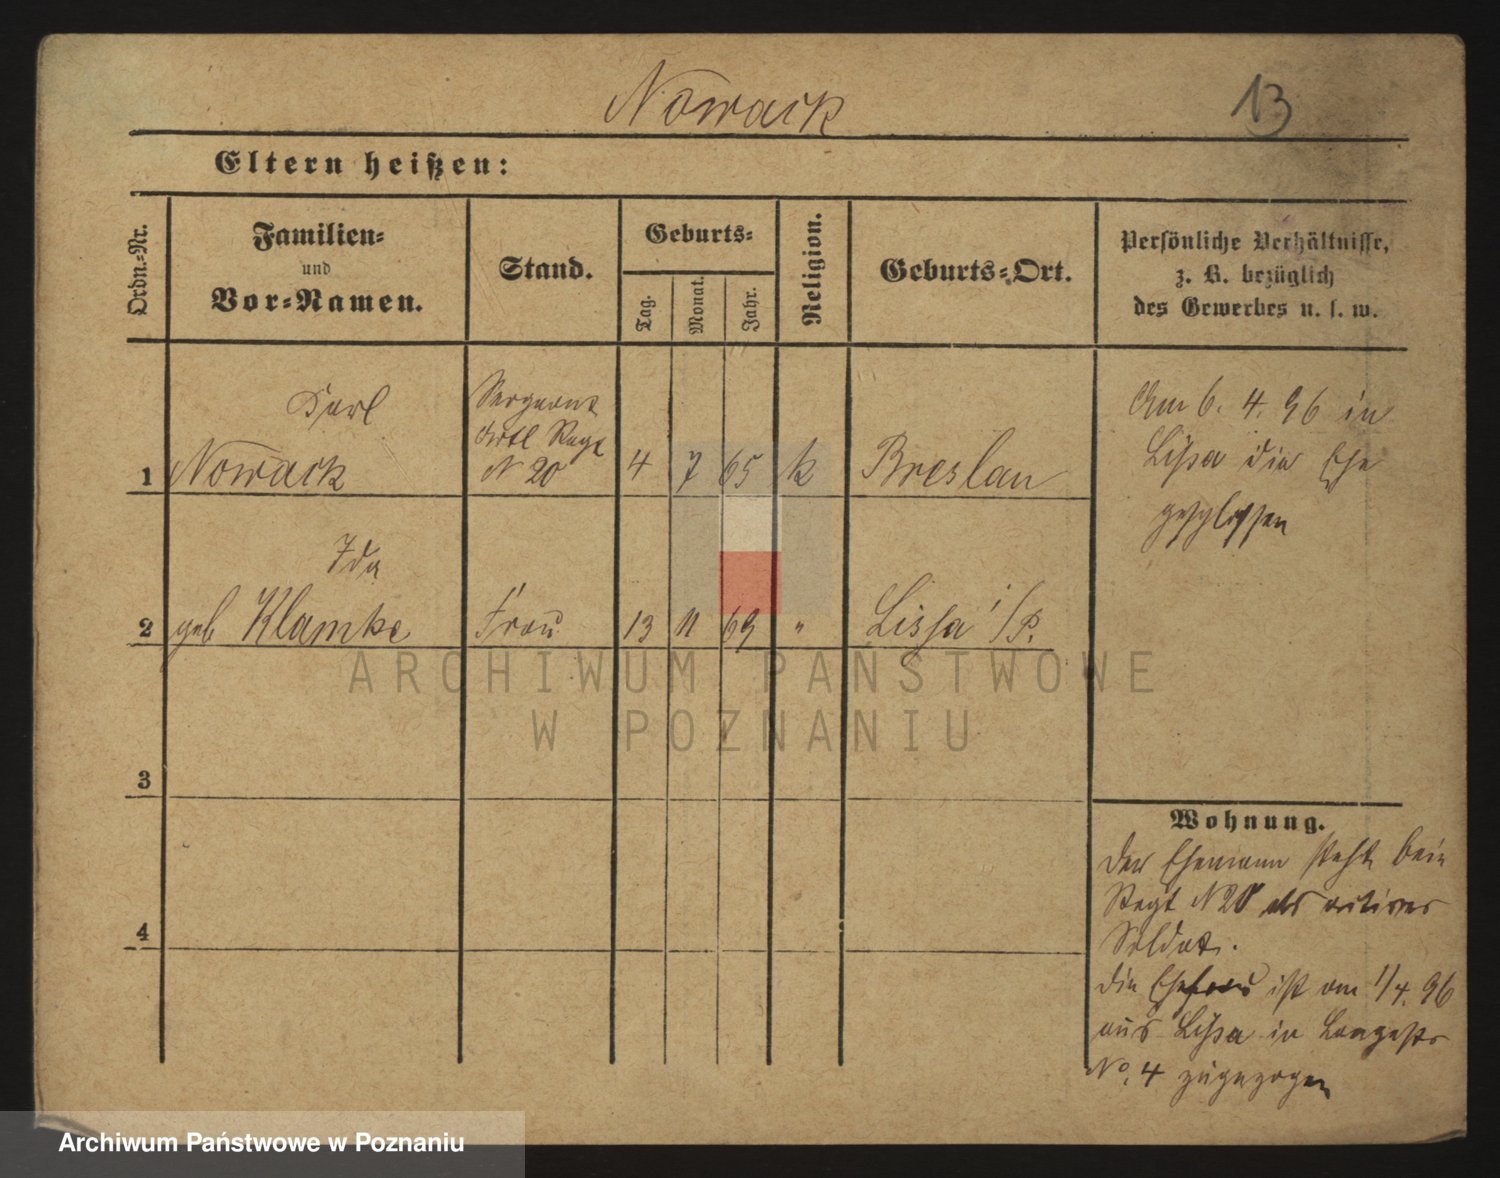 Nowack
13
Eltern heißen:
Ordn.-Nr.
Familien-
und
Vor-Namen.
Stand.
Geburts-
Tag.
Monat.
Jahr.
Religion.
Geburts-Ort.
Persönliche Verhältnisse,
z. B. bezüglich
des Gewerbes u. s. w.
Karl
Sergeant
Artl Regt
1 Nowack N 20 4 7 65 k Breslau
Am 6. 4. 96 in
Lissa die Ehe
geschlossen
Ida
2 geb Klamke Frau 13 11 69 " Lissa i/P.
ARCHIWUM PAŃSTWOWE
W POZNANIU
3
4
Wohnung.
Der Ehemann steht beim
Regt N 20 als aktiver
Soldat.
Die Ehefrau ist am 1/4. 96
aus Lissa in Langestr
No. 4 zugezogen
Archiwum Państwowe w Poznaniu